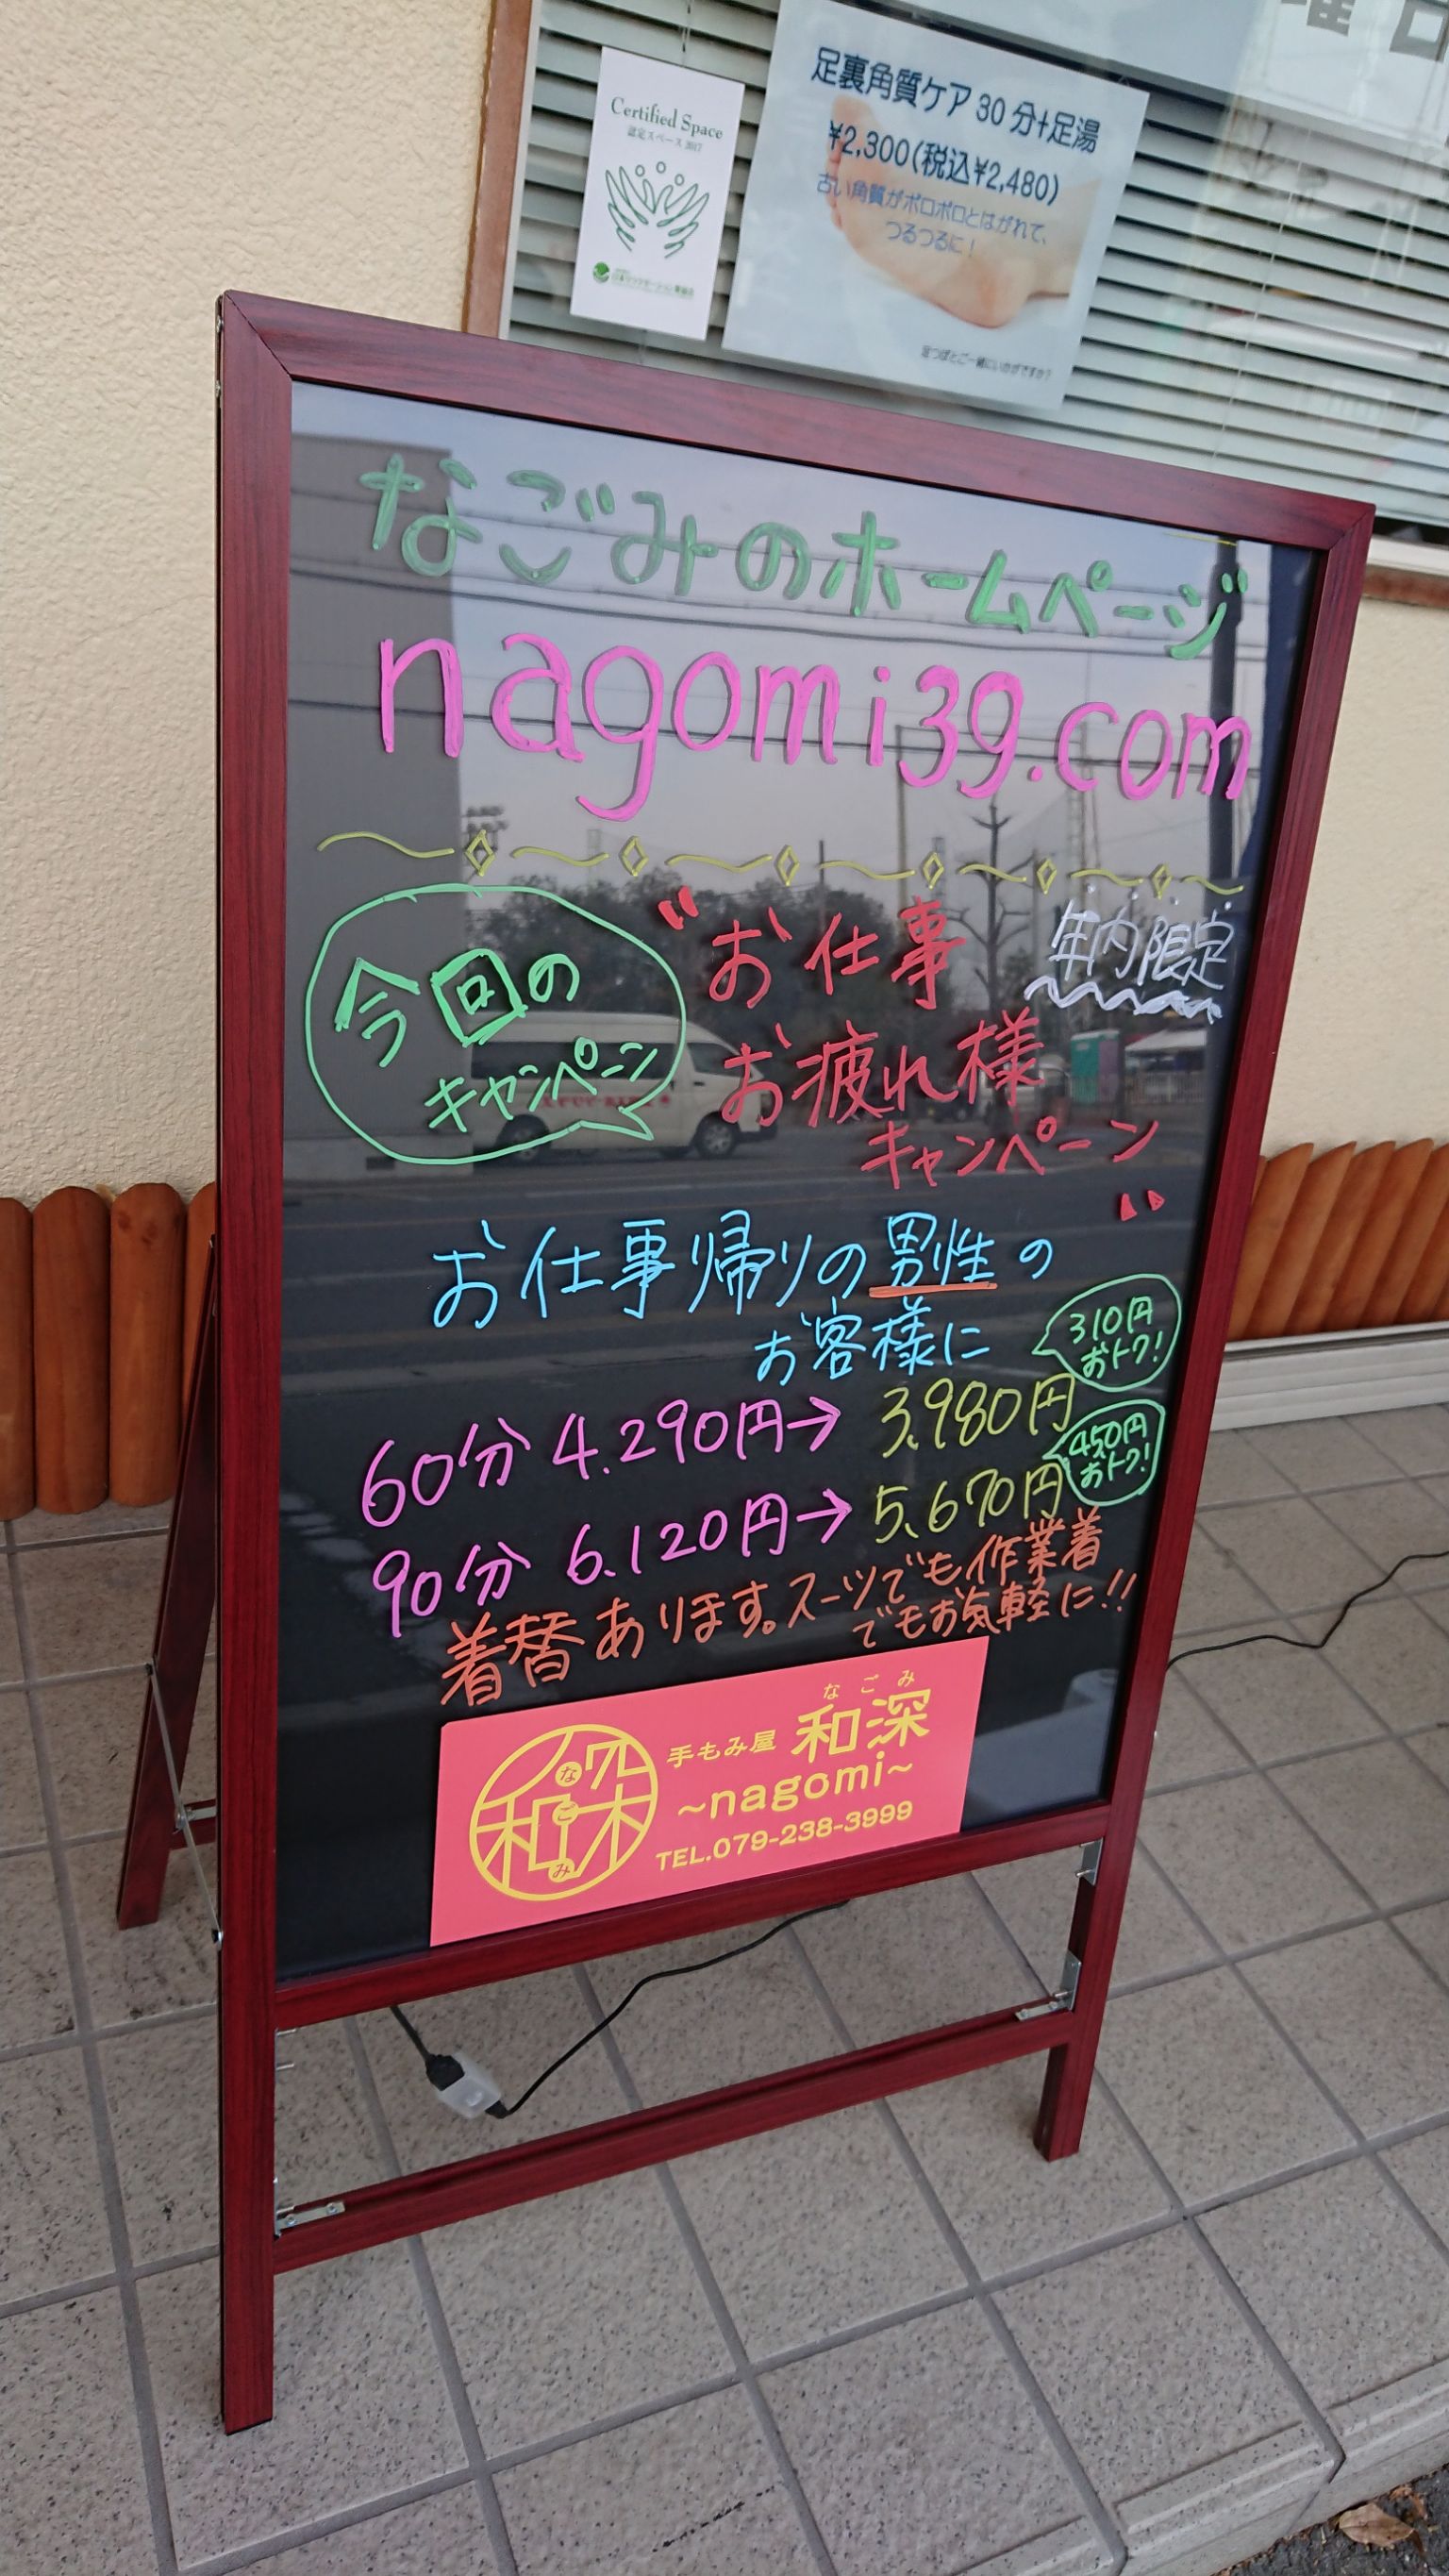 Certified Space
認定スペース 2017
足裏角質ケア 30分+足湯
¥2,300(税込¥2,480)
古い角質がポロポロとはがれて、
つるつるに！
足つぼとご一緒にいかがですか？
曜日
なごみのホームページ
nagomi39.com
今回の
キャンペーン
"お仕事
お疲れ様
キャンペーン"
年内限定
お仕事帰りの男性の
お客様に
60分 4.290円→ 3.980円
310円
おトク!
90分 6.120円→ 5.670円
450円
おトク!
着替あります。スーツでも作業着
でもお気軽に!!
和
なごみ
手もみ屋 和深
なごみ
~nagomi~
TEL.079-238-3999